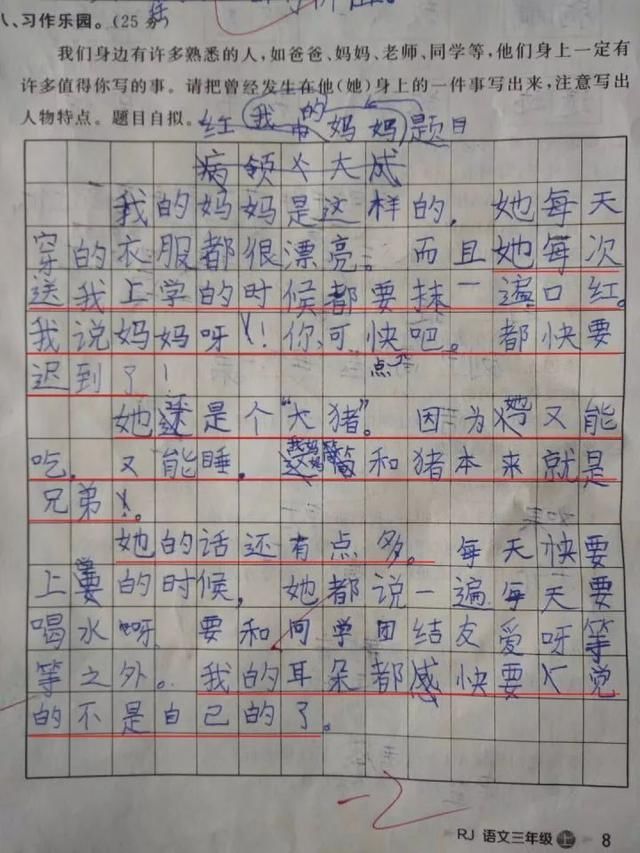 八、习作乐园。(25分)
我们身边有许多熟悉的人,如爸爸、妈妈、老师、同学等,他们身上一定有
许多值得你写的事。请把曾经发生在他(她)身上的一件事写出来,注意写出
人物特点。题目自拟。
红我的妈妈题目
病领人大成
我的妈妈是这样的,她每天
穿的衣服都很漂亮。而且她每次
送我上学的时候都要抹一遍口红。
我说妈妈呀!你可快点吧。都快要
迟到了!
她还是个“大猪”。因为她又能
吃,又能睡,我妈妈简直和猪本来就是
兄弟。
她的话还有点多。每天快要
上学的时候,她都说一遍每天要
喝水呀要和同学团结友爱呀等
等之外。我的耳朵都感快要觉
的不是自己的了。
-2
RJ 语文三年级上 8